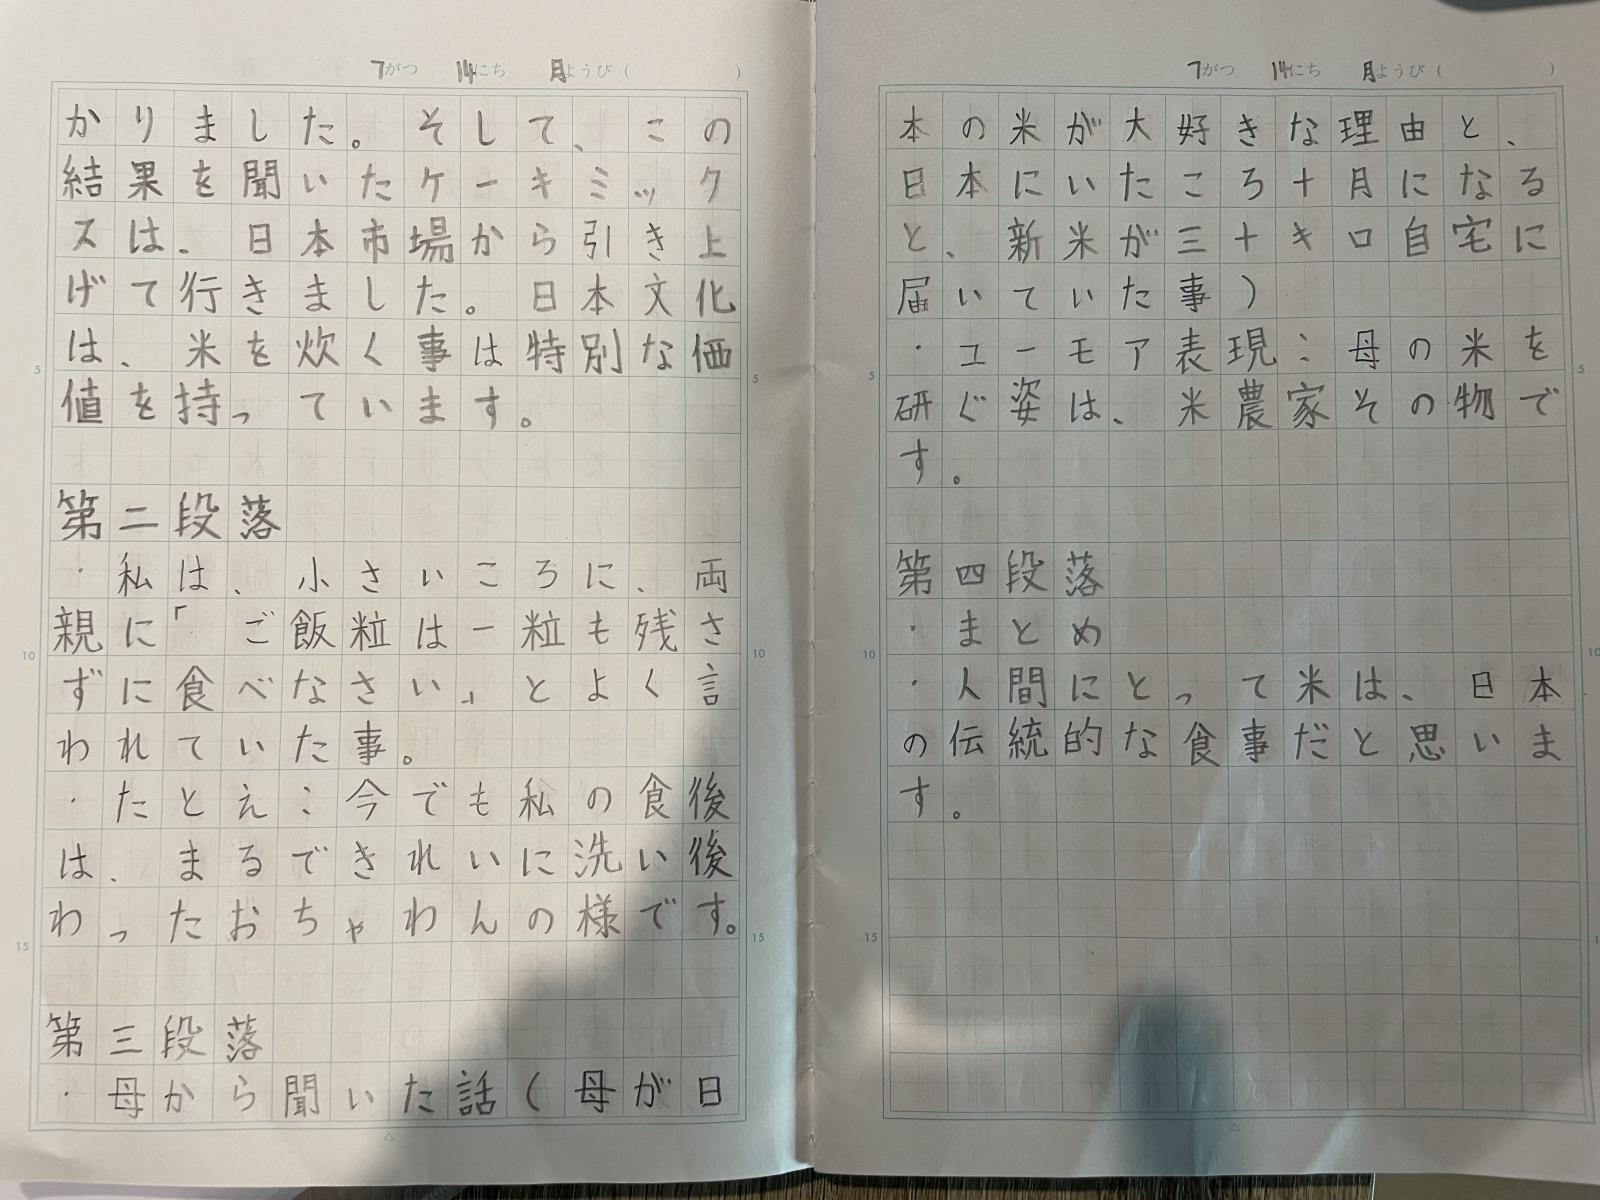 7がつ 14にち 月ようび( )
かりました。そして、この
結果を聞いたケーキミック
スは、日本市場から引き上
げて行きました。日本文化
は、米を炊く事は特別な価
値を持っています。
第二段落
・私は、小さいころに、両
親に「ご飯粒は一粒も残さ
ずに食べなさい」とよく言
われていた事。
・たとえ:今でも私の食後
は、まるできれいに洗い後
わったおちゃわんの様です。
第三段落
・母から聞いた話(母が日
5
10
15
7がつ 14にち 月ようび( )
本の米が大好きな理由と、
日本にいたころ十月になる
と、新米が三十キロ自宅に
届いていた事)
・ユーモア表現:母の米を
研ぐ姿は、米農家その物で
す。
第四段落
・まとめ
・人間にとって米は、日本
の伝統的な食事だと思いま
す。
5
10
15